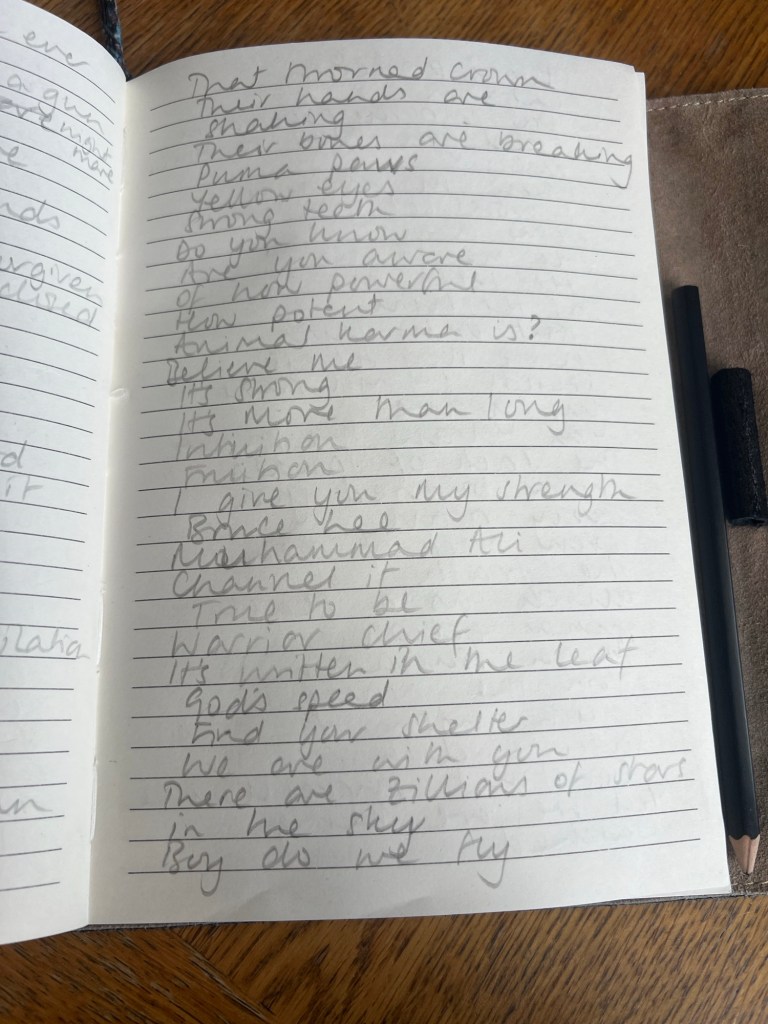 ever
a gun
might
more
nds
orgiven
d
it
lation
That thorned crown
Their hands are
shaking
Their bones are breaking
Puma paws
Yellow eyes
Strong teeth
Do you know
Are you aware
Of how powerful
How potent
Animal karma is?
Believe me
It's strong
It's more than long
Intuition
Fruition
I give you my strength
Bruce Lee
Muhammad Ali
Channel it
True to be
Warrior chief
It's written in the leaf
God's speed
Find your shelter
We are with you
There are zillions of stars
in the sky
Boy do we fly